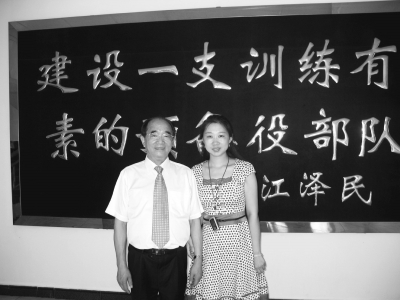 建设一支训练有
素的 役部队
江泽民